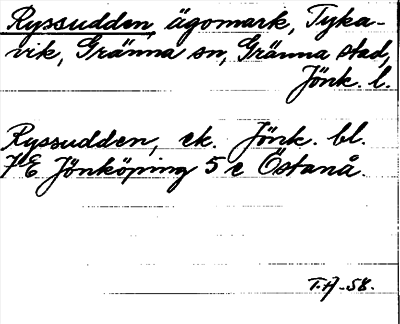 Ryssudden, ägomark, Tyka-
vik, Gränna sn, Gränna stad,
Jönk. l.
Ryssudden, ek. Jönk. bl.
7E Jönköping 5 e Östanå.
T.H-58.